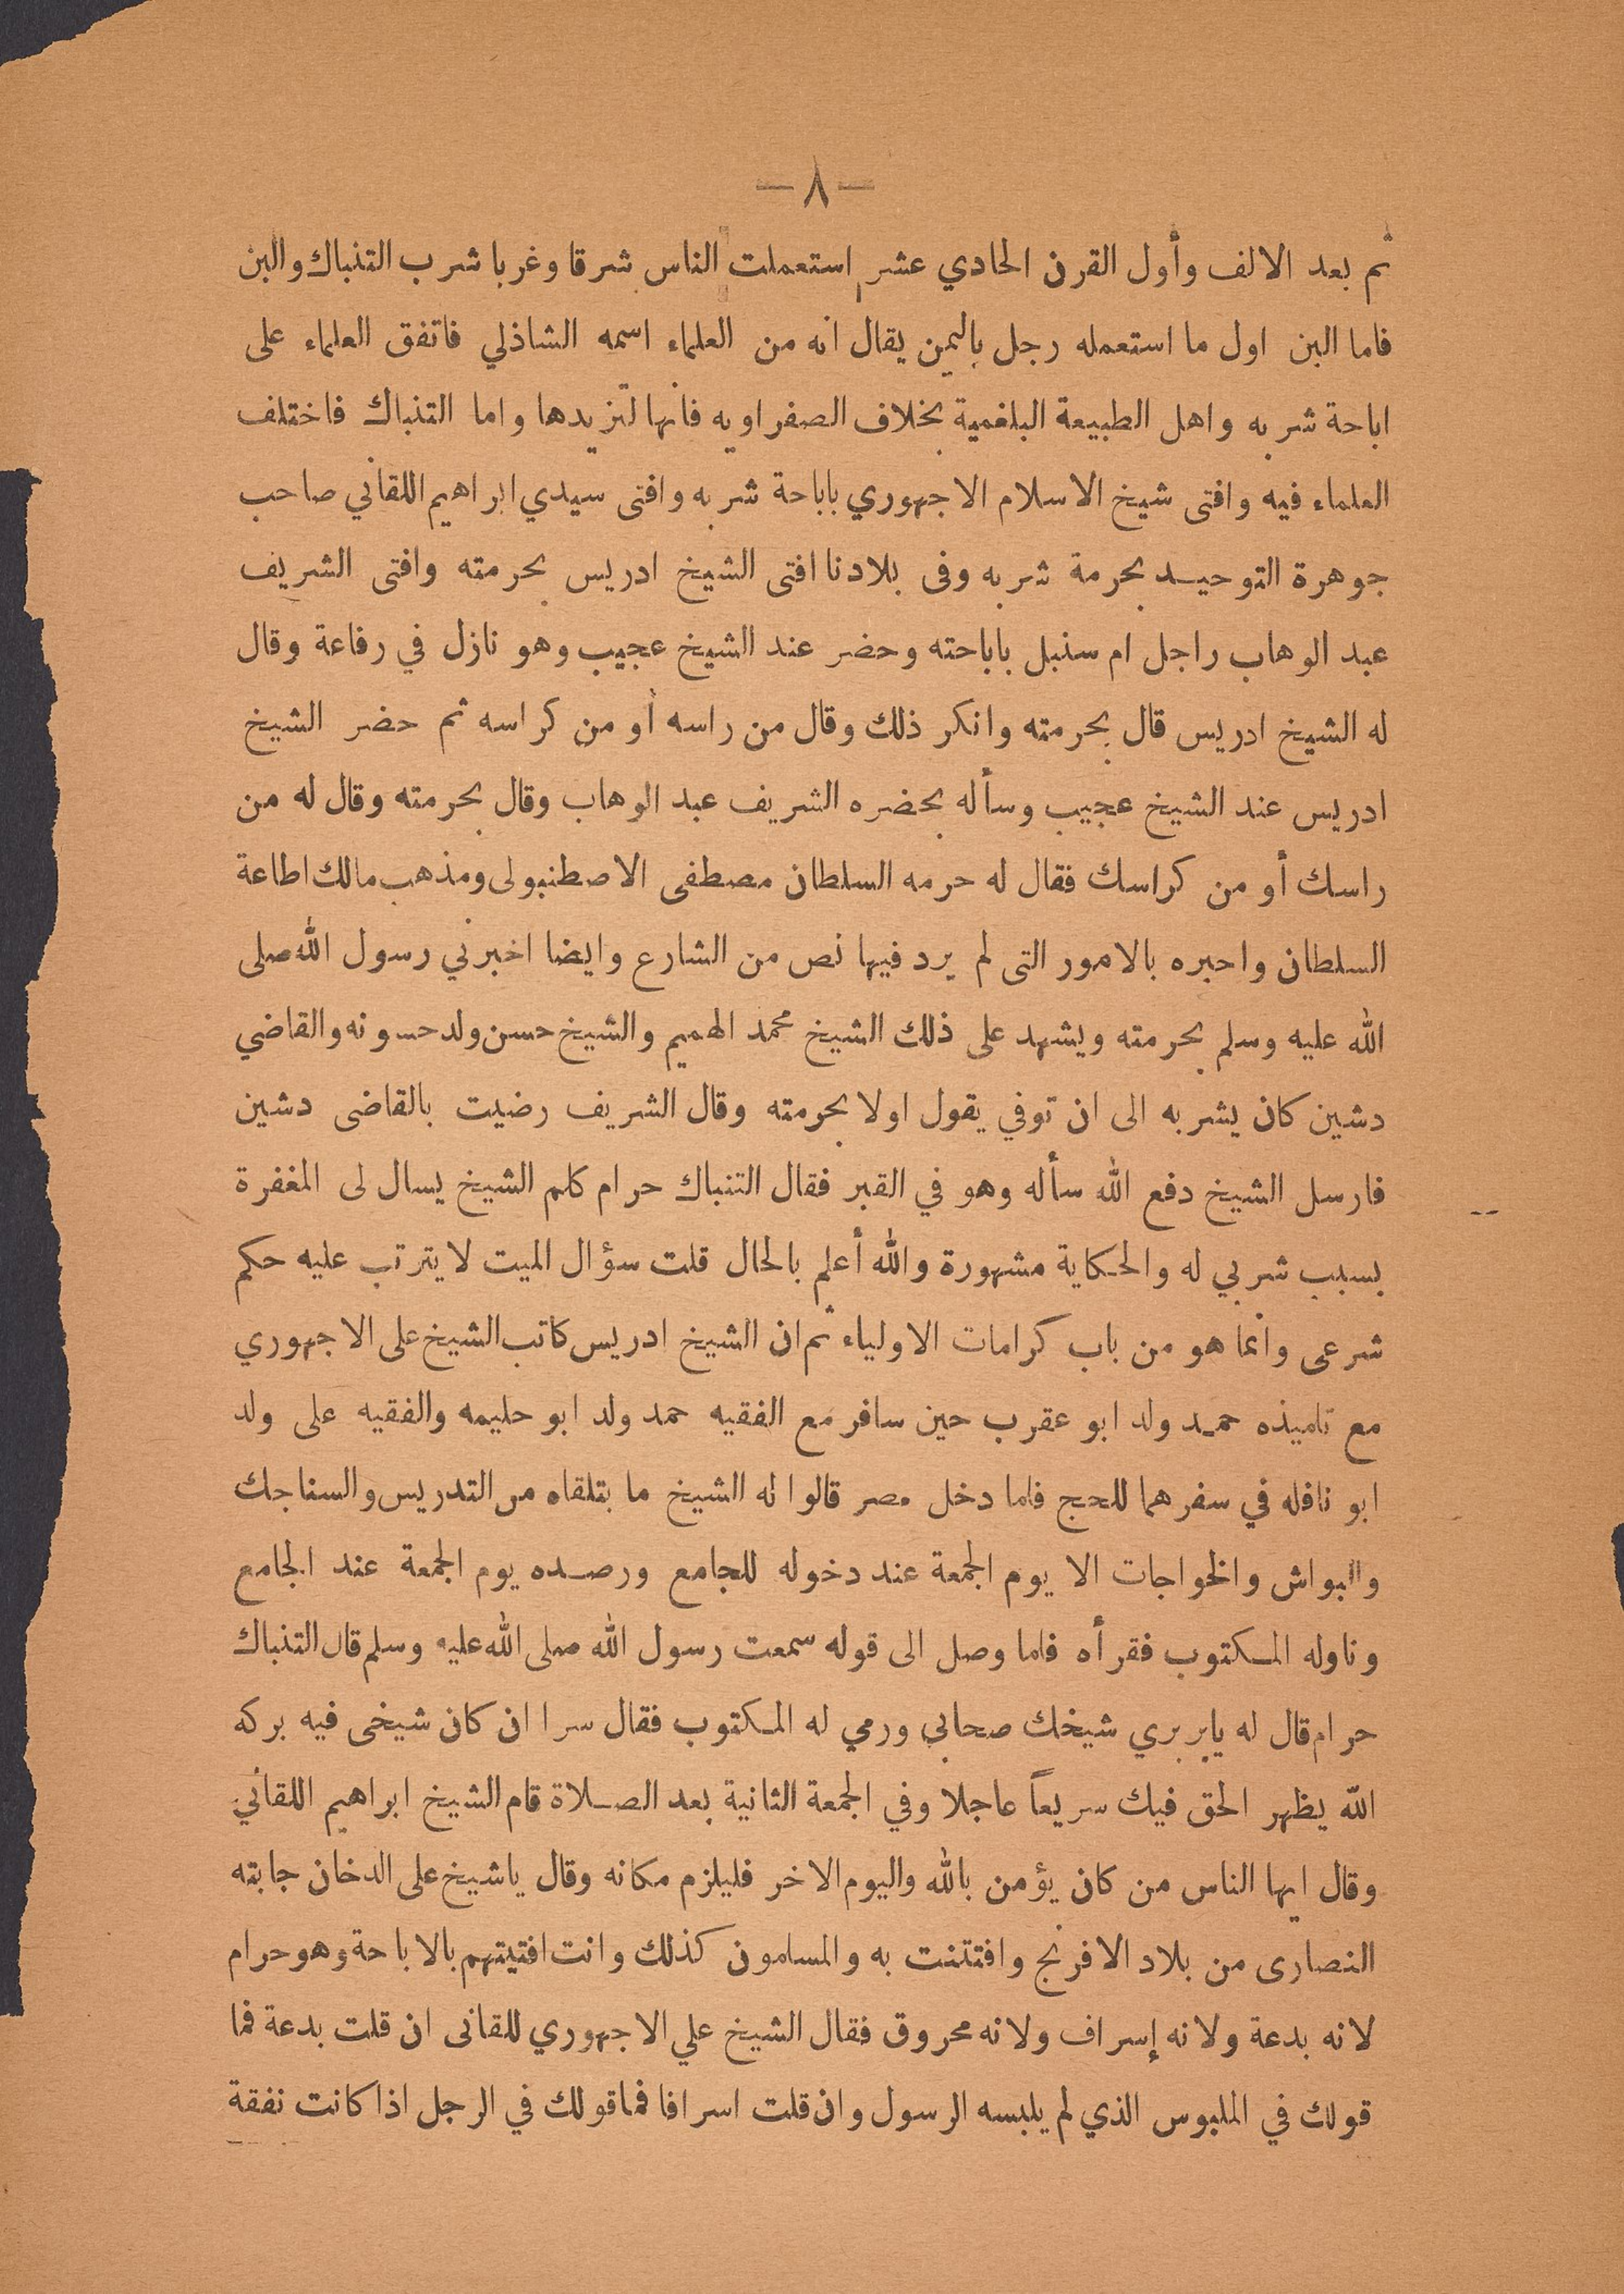 — ٨ —
ثم بعد الالف وأول القرن الحادي عشر استعملت الناس شرقا وغربا شرب التنباك والبن
فاما البن اول ما استعمله رجل باليمن يقال انه من العلماء اسمه الشاذلي فاتفق العلماء على
اباحة شربه واهل الطبيعة البلغمية بخلاف الصفراويه فانها تزيدها واما التنباك فاختلف
العلماء فيه وافتى شيخ الاسلام الاجهوري باباحة شربه وافتى سيدي ابراهيم اللقاني صاحب
جوهرة التوحيد بحرمة شربه وفى بلادنا افتى الشيخ ادريس بحرمته وافتى الشريف
عبد الوهاب راجل ام سنبل باباحته وحضر عند الشيخ عجيب وهو نازل في رفاعة وقال
له الشيخ ادريس قال بحرمته وانكر ذلك وقال من راسه أو من كراسه ثم حضر الشيخ
ادريس عند الشيخ عجيب وسأله بحضره الشريف عبد الوهاب وقال بحرمته وقال له من
راسك أو من كراسك فقال له حرمه السلطان مصطفى الاصطنبولى ومذهب مالك اطاعة
السلطان واحبره بالامور التى لم يرد فيها نص من الشارع وايضا اخبرني رسول الله صلى
الله عليه وسلم بحرمته ويشهد على ذلك الشيخ محمد الهميم والشيخ حسن ولد حسونه والقاضي
دشين كان يشربه الى ان توفي يقول اولا بحرمته وقال الشريف رضيت بالقاضى دشين
فارسل الشيخ دفع الله سأله وهو في القبر فقال التنباك حرام كلم الشيخ يسال لى المغفرة
بسبب شربي له والحكاية مشهورة والله أعلم بالحال قلت سؤال الميت لا يترتب عليه حكم
شرعى وانما هو من باب كرامات الاولياء ثم ان الشيخ ادريس كاتب الشيخ على الاجهوري
مع تلميذه حمد ولد ابو عقرب حين سافر مع الفقيه حمد ولد ابو حليمه والفقيه على ولد
ابو نافله في سفرهما للحج فلما دخل مصر قالوا له الشيخ ما بتلقاه من التدريس والسناجك
والبواش والخواجات الا يوم الجمعة عند دخوله للجامع ورصده يوم الجمعة عند الجامع
وناوله المكتوب فقرأه فلما وصل الى قوله سمعت رسول الله صلى الله عليه وسلم قال التنباك
حرام قال له يابربري شيخك صحابي ورمي له المكتوب فقال سرا ان كان شيخى فيه بركه
الله يظهر الحق فيك سريعاً عاجلا وفي الجمعة الثانية بعد الصلاة قام الشيخ ابراهيم اللقاني
وقال ايها الناس من كان يؤمن بالله واليوم الاخر فليلزم مكانه وقال ياشيخ على الدخان جابته
النصارى من بلاد الافرنج وافتتنت به والمسلمون كذلك وانت افتيتهم بالاباحة وهو حرام
لانه بدعة ولانه إسراف ولانه محروق فقال الشيخ علي الاجهوري للقانى ان قلت بدعة فما
قولك في الملبوس الذي لم يلبسه الرسول وان قلت اسرافا فما قولك في الرجل اذا كانت نفقة